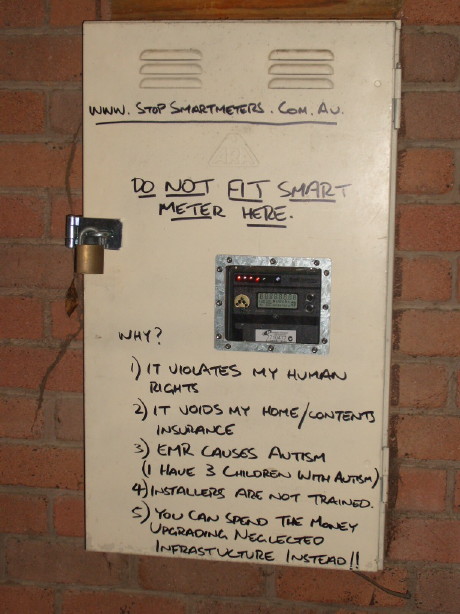 www. STOP SMARTMETERS. COM. AU.
DO NOT FIT SMART
METER HERE.
WHY?
1) IT VIOLATES MY HUMAN
RIGHTS
2) IT VOIDS MY HOME/CONTENTS
INSURANCE
3) EMR CAUSES AUTISM
(I HAVE 3 CHILDREN WITH AUTISM)
4) INSTALLERS ARE NOT TRAINED.
5) YOU CAN SPEND THE MONEY
UPGRADING NEGLECTED
INFRASTUCTURE INSTEAD!!